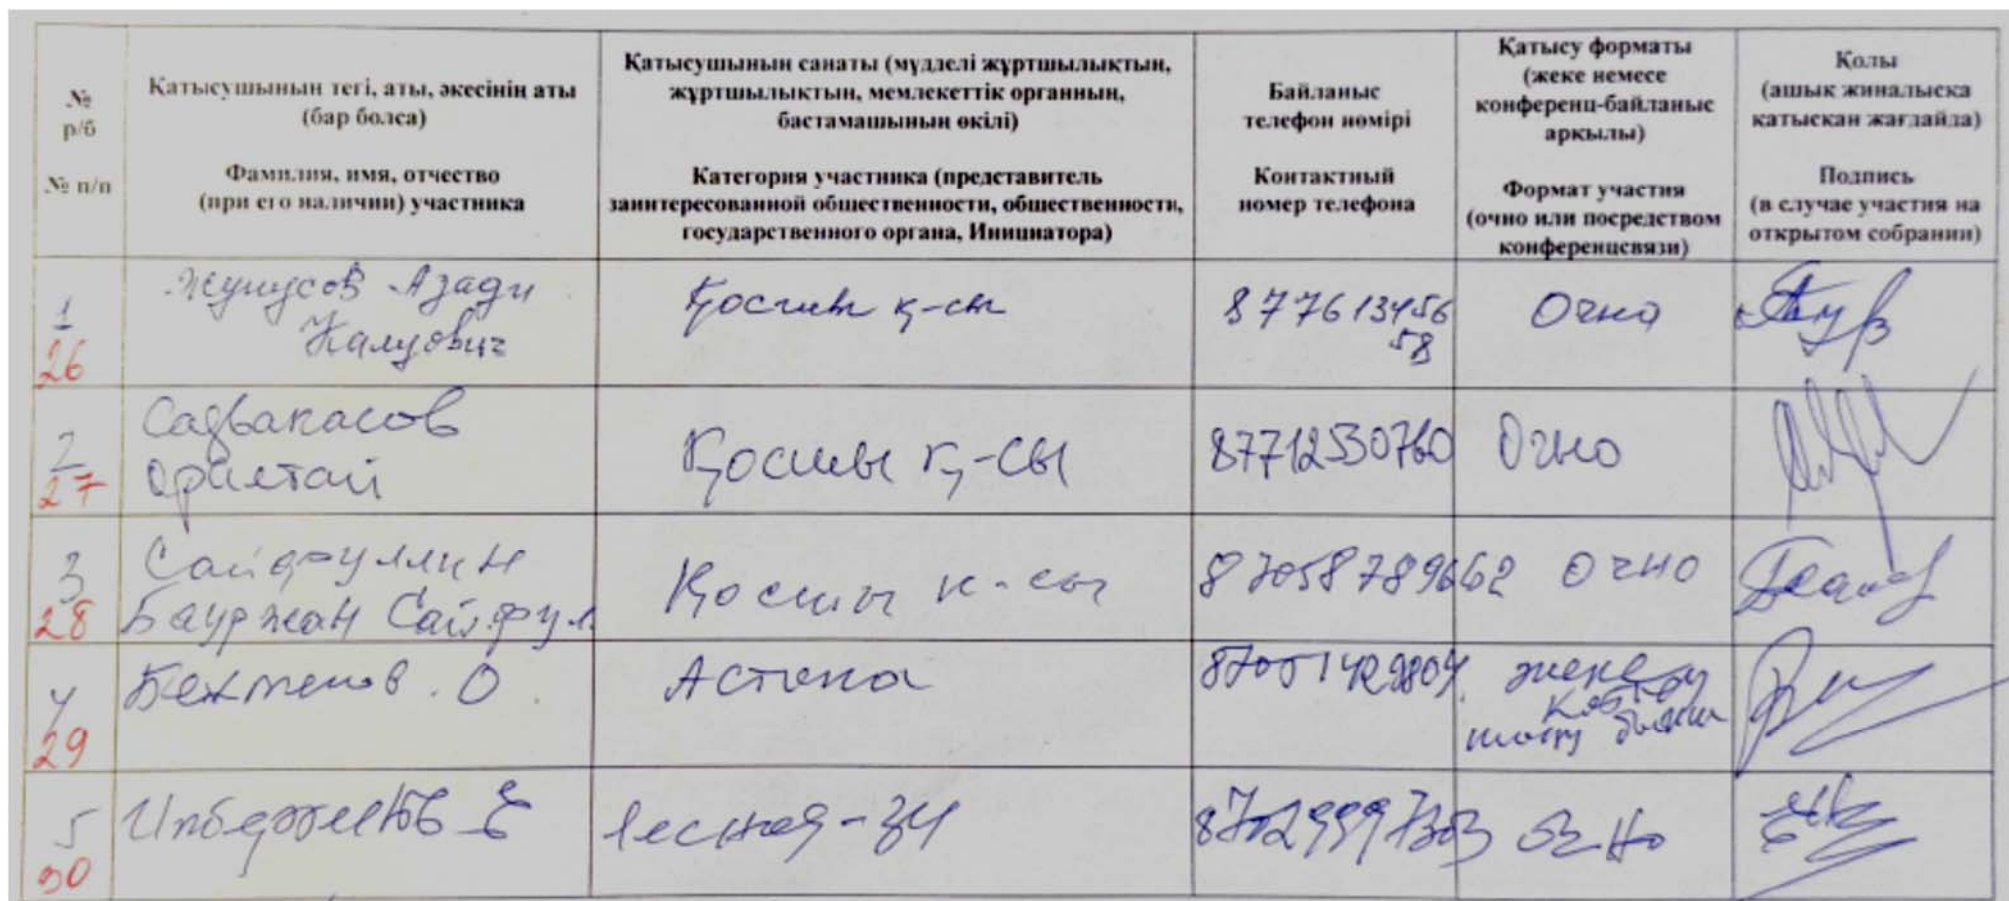 №
р/б
№ п/п
Қатысушының тегі, аты, әкесінің аты
(бар болса)
Фамилия, имя, отчество
(при его наличии) участника
Қатысушының санаты (мүдделі жұртшылықтың,
жұртшылықтың, мемлекеттік органның,
бастамашының өкілі)
Категория участника (представитель
заинтересованной общественности, общественности,
государственного органа, Инициатора)
Байланыс
телефон нөмірі
Контактный
номер телефона
Қатысу форматы
(жеке немесе
конференц-байланыс
арқылы)
Формат участия
(очно или посредством
конференцсвязи)
Қолы
(ашық жиналысқа
қатысқан жағдайда)
Подпись
(в случае участия на
открытом собрании)
1
26
Жунусов Азади
Қосшы қ-сы
877613456
58
Очно
2
27
Садвакасов
Қосшы қ-сы
87712530760
Очно
3
28
Сайфуллин
Бауржан Сайфул
Қосшы к-сы
87058789662
очно
4
29
Бектенов. О.
Астана
5
30
Лесная-34
87029997303
очно